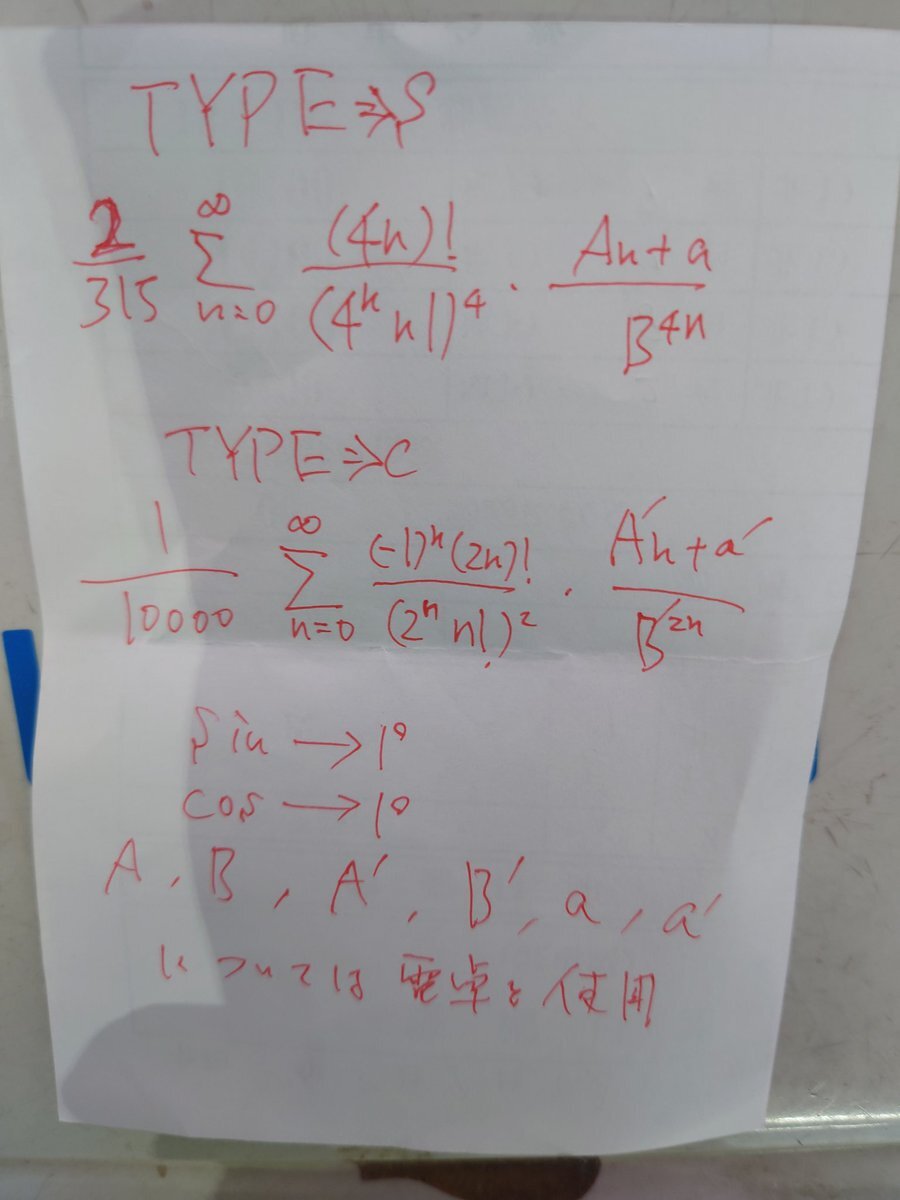 TYPE⇒S
2/315 ∑_{n=0}^{∞} (4n)!/(4ⁿn!)⁴ · An+a/B⁴ⁿ
TYPE⇒C
1/10000 ∑_{n=0}^{∞} (-1)ⁿ(2n)!/(2ⁿn!)² · A′n+a′/B′²ⁿ
sin → 1°
cos → 1°
A, B, A′, B′, a, a′
については電卓を使用